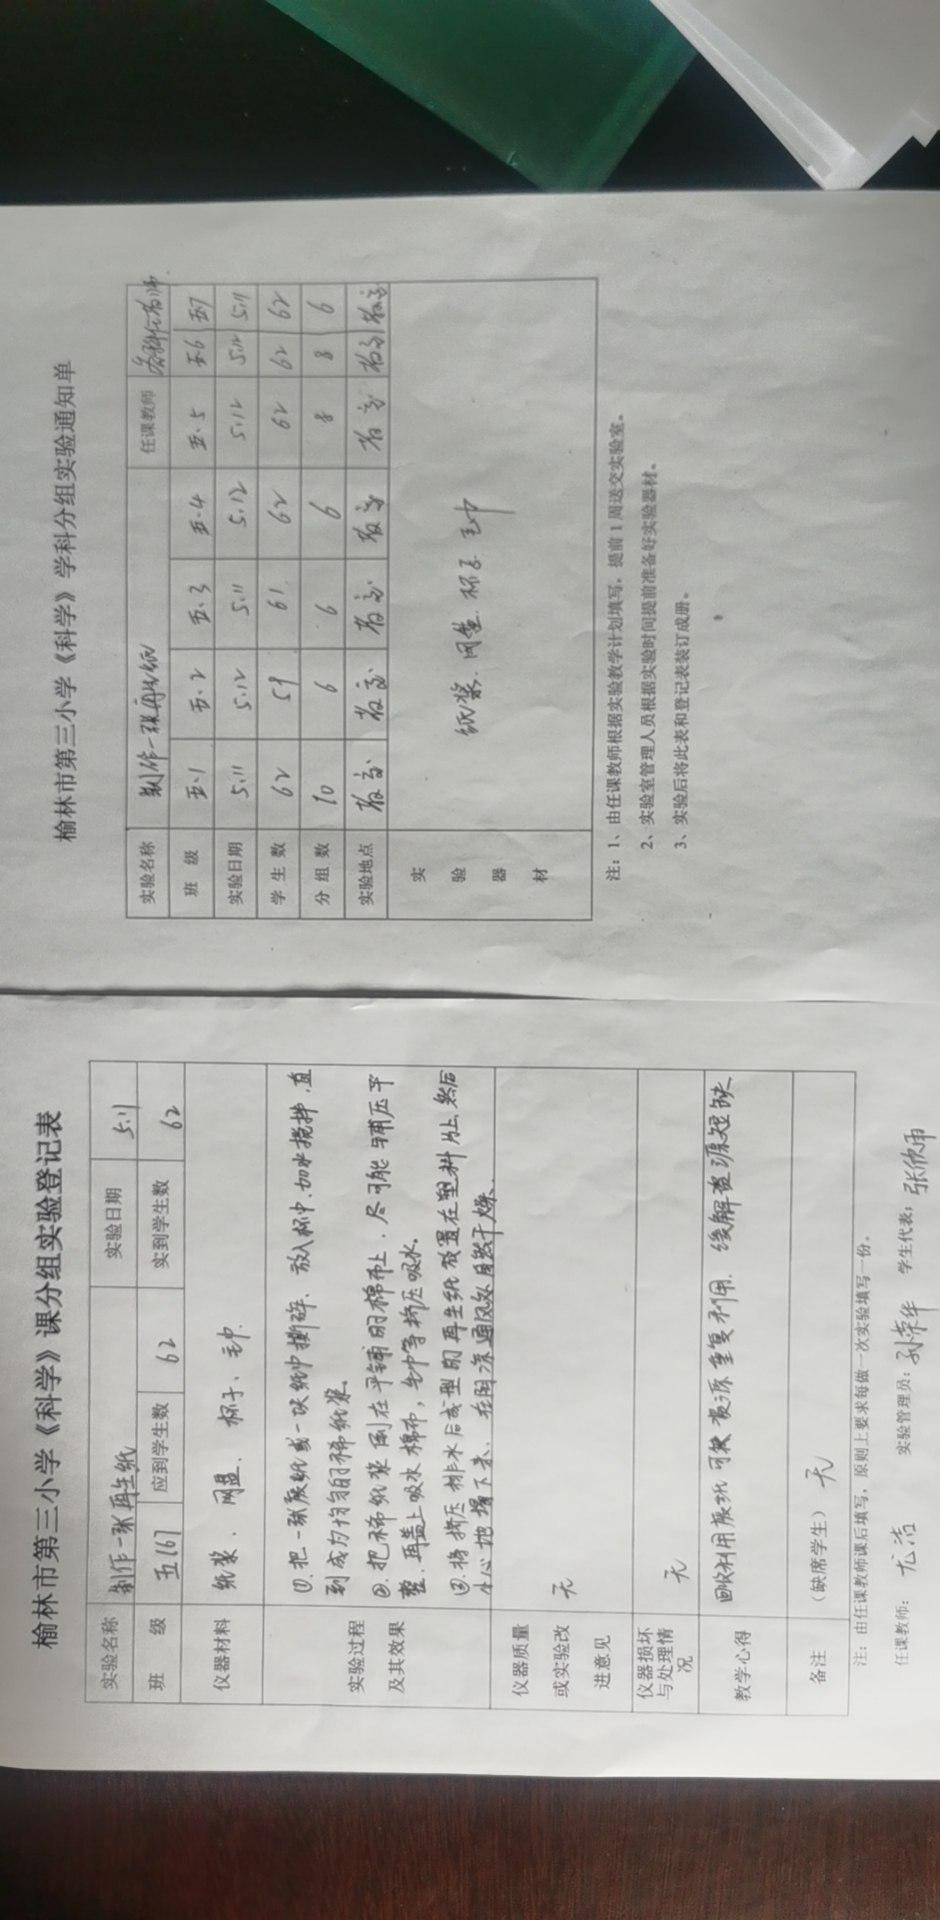 榆林市第三小学《科学》课分组实验登记表
实验名称 制作一张再生纸 实验日期 5.11
班 级 五(6) 应到学生数 62 实到学生数 62
仪器材料 纸浆、网盘、杯子、毛巾
实验过程及其效果
①.把一张废纸或一块纸巾撕碎、放入杯中.加水搅拌.直
到成为均匀的稀纸浆。
②.把稀纸浆倒在平铺的棉布上.尽可能铺压平
整.再盖上吸水棉布,毛巾等挤压吸水。
③.将挤压排水后成型的再生纸放置在塑料片上,然后
小心地揭下来、在阴凉通风处自然干燥.
仪器质量或实验改进意见 无
仪器损坏与处理情况 无
教学心得 回收利用废纸可使资源重复利用.缓解资源短缺
备注 (缺席学生) 无
注:由任课教师课后填写,原则上要求每做一次实验填写一份。
任课教师: 尤洁 实验管理员: 孙荣华 学生代表: 张欣雨
榆林市第三小学《科学》学科分组实验通知单
实验名称 制作一张再生纸 任课教师
班 级 五.1 五.2 五.3 五.4 五.5 五.6 五.7
实验日期 5.11 5.12 5.11 5.12 5.12 5.12 5.11
学 生 数 62 59 61 62 62 62 62
分 组 数 10 6 6 6 8 8 6
实验地点 教室 教室 教室 教室 教室 教室 教室
实验器材 纸浆.网盘.杯子 毛巾
注:1、由任课教师根据实验教学计划填写,提前1周送交实验室。
2、实验室管理人员根据实验时间提前准备好实验器材。
3、实验后将此表和登记表装订成册。